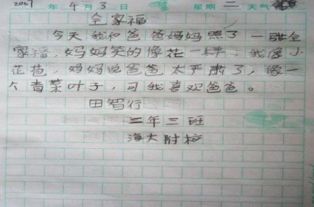 2007年4月3日 星期二 天气
全家福
今天我和爸爸妈妈照了一张全
家福,妈妈笑的像花一样,我像小
花苗,妈妈说爸爸太严肃了,像一
个青菜叶子,可我喜欢爸爸。
田智行
二年三班
海大附校